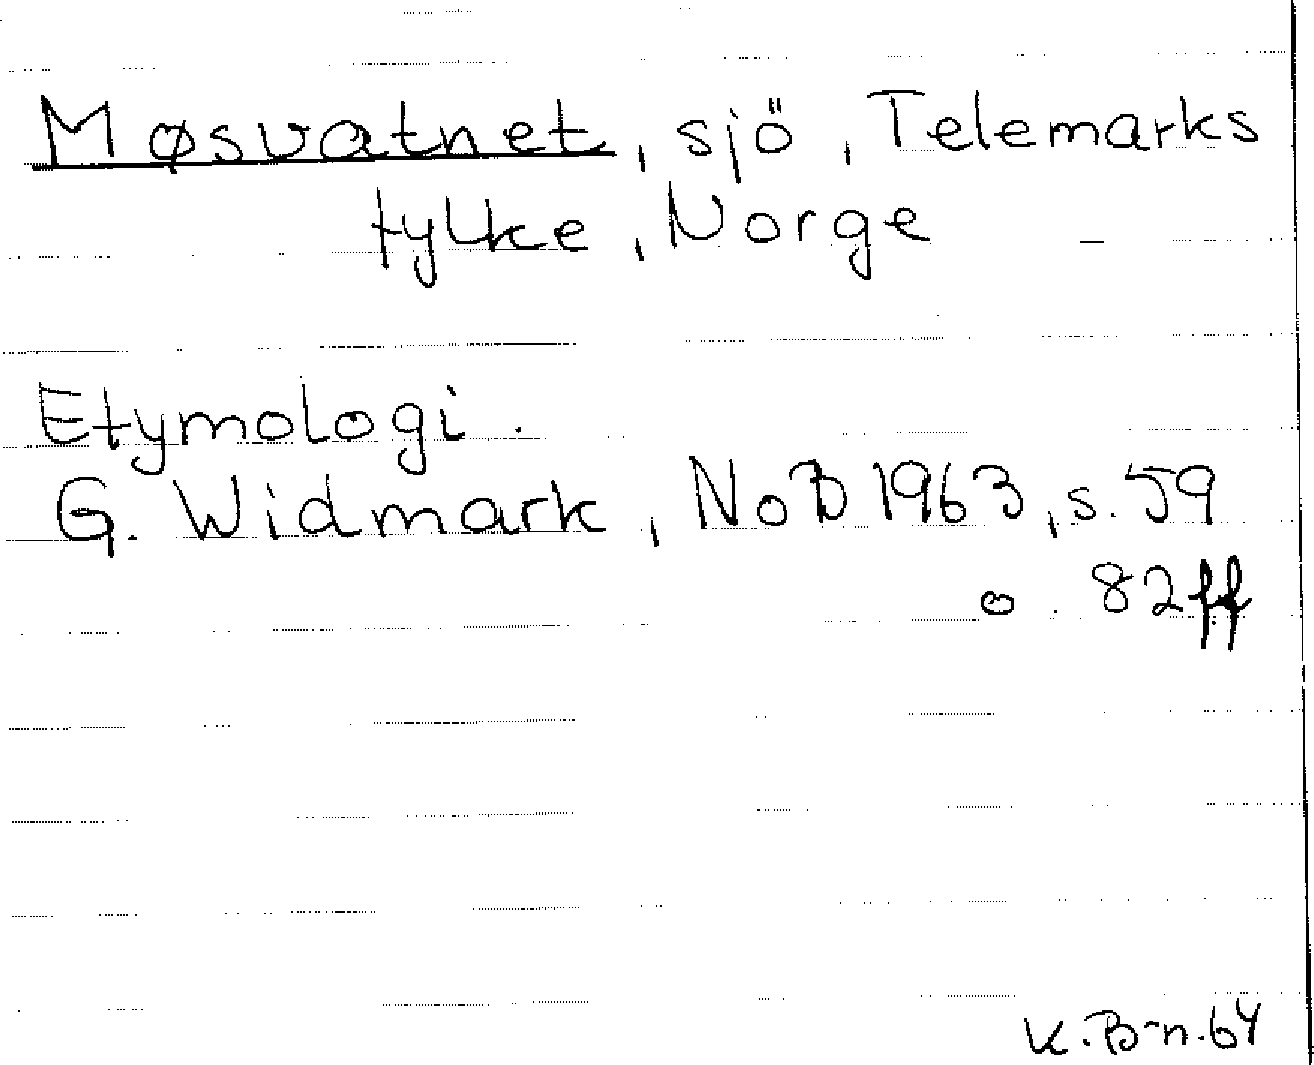 Møsvatnet, sjö, Telemarks
fylke, Norge
Etymologi.
G. Widmark, NoB 1963, s. 59
o. 82ff
K.B-n.64